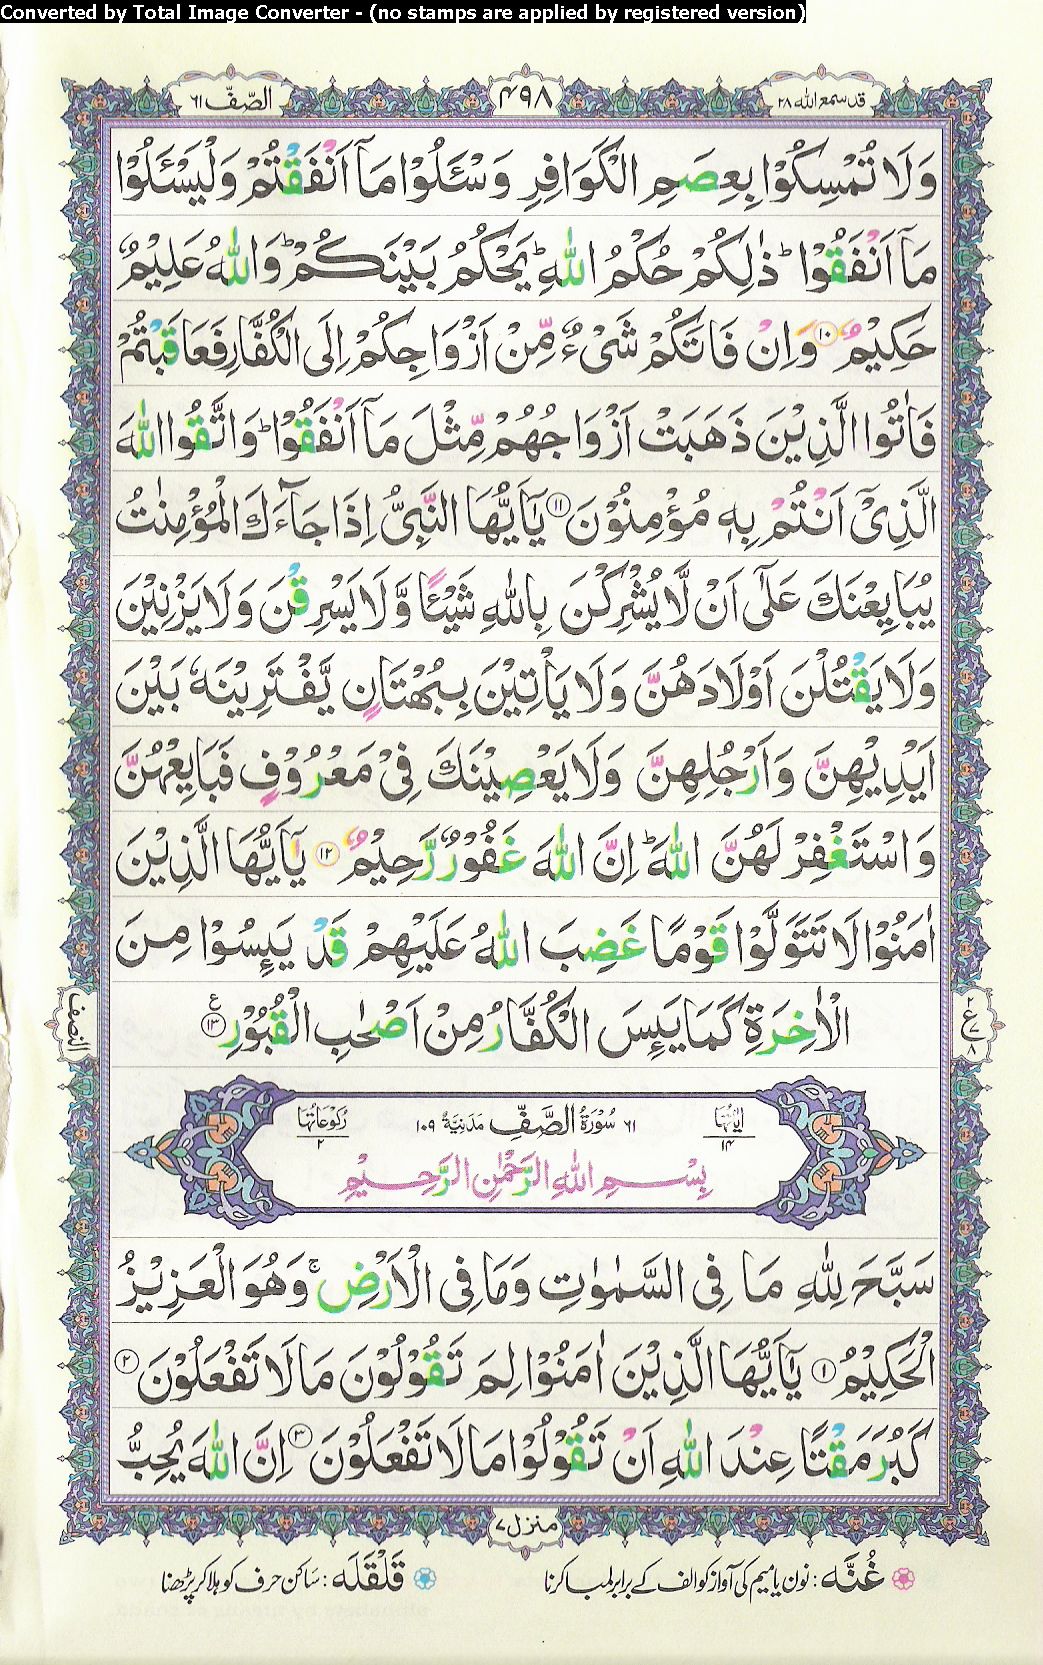 Converted by Total Image Converter - (no stamps are applied by registered version)
قد سمع الله ٢٨
٤٩٨
الصّفّ ٦١
وَلَا تُمْسِكُوْا بِعِصَمِ الْكَوَافِرِ وَسْئَلُوْا مَاۤ اَنْفَقْتُمْ وَلْيَسْئَلُوْا
مَاۤ اَنْفَقُوْا ؕ ذٰلِكُمْ حُكْمُ اللّٰهِ ؕ يَحْكُمُ بَيْنَكُمْ ؕ وَاللّٰهُ عَلِيْمٌ
حَكِيْمٌ ۝۱۰ وَاِنْ فَاتَكُمْ شَیْءٌ مِّنْ اَزْوَاجِكُمْ اِلَى الْكُفَّارِ فَعَاقَبْتُمْ
فَاٰتُوا الَّذِيْنَ ذَهَبَتْ اَزْوَاجُهُمْ مِّثْلَ مَاۤ اَنْفَقُوْا ؕ وَاتَّقُوا اللّٰهَ
الَّذِیْۤ اَنْتُمْ بِهٖ مُؤْمِنُوْنَ ۝۱۱ يٰۤاَيُّهَا النَّبِیُّ اِذَا جَآءَكَ الْمُؤْمِنٰتُ
يُبَايِعْنَكَ عَلٰۤى اَنْ لَّا يُشْرِكْنَ بِاللّٰهِ شَيْئًا وَّلَا يَسْرِقْنَ وَلَا يَزْنِيْنَ
وَلَا يَقْتُلْنَ اَوْلَادَهُنَّ وَلَا يَاْتِيْنَ بِبُهْتَانٍ يَّفْتَرِيْنَهٗ بَيْنَ
اَيْدِيْهِنَّ وَاَرْجُلِهِنَّ وَلَا يَعْصِيْنَكَ فِیْ مَعْرُوْفٍ فَبَايِعْهُنَّ
وَاسْتَغْفِرْ لَهُنَّ اللّٰهَ ؕ اِنَّ اللّٰهَ غَفُوْرٌ رَّحِيْمٌ ۝۱۲ يٰۤاَيُّهَا الَّذِيْنَ
اٰمَنُوْا لَا تَتَوَلَّوْا قَوْمًا غَضِبَ اللّٰهُ عَلَيْهِمْ قَدْ يَئِسُوْا مِنَ
الْاٰخِرَةِ كَمَا يَئِسَ الْكُفَّارُ مِنْ اَصْحٰبِ الْقُبُوْرِ ۝۱۳ ع
٢ ع ٧ ٨
النصف
اٰيَاتُهَا ١٤
٦١ سُوْرَةُ الصَّفِّ مَدَنِيَّةٌ ١٠٩
رُكُوْعَاتُهَا ٢
بِسْمِ اللّٰهِ الرَّحْمٰنِ الرَّحِيْمِ
سَبَّحَ لِلّٰهِ مَا فِی السَّمٰوٰتِ وَمَا فِی الْاَرْضِ ۚ وَهُوَ الْعَزِيْزُ
الْحَكِيْمُ ۝۱ يٰۤاَيُّهَا الَّذِيْنَ اٰمَنُوْا لِمَ تَقُوْلُوْنَ مَا لَا تَفْعَلُوْنَ ۝۲
كَبُرَ مَقْتًا عِنْدَ اللّٰهِ اَنْ تَقُوْلُوْا مَا لَا تَفْعَلُوْنَ ۝۳ اِنَّ اللّٰهَ يُحِبُّ
منزل ٧
غُنَّه : نون یا میم کی آواز کو الف کے برابر لمبا کرنا
قَلْقَلَه : ساکن حرف کو ہلا کر پڑھنا